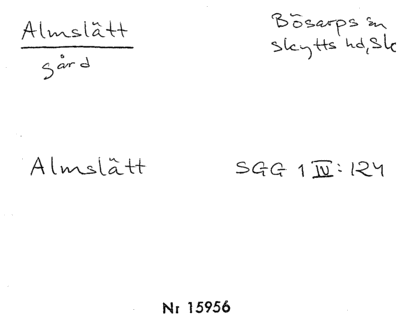 Almslätt
gård
Bösarps sn
Skytts hd, Sk
Almslätt
SGG 1 IV: 124
Nr 15956